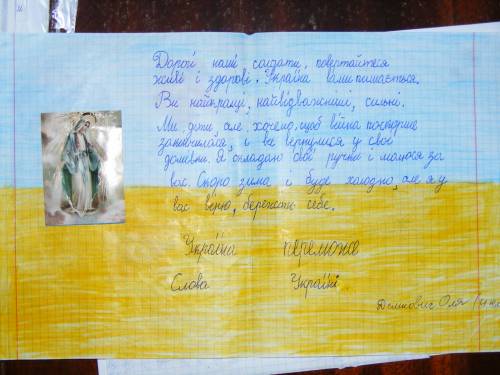 Дорогі наші солдати, повертайтеся
живі і здорові. Україна вами пишається.
Ви найкращі, найвідважніші, сильні.
Ми діти, але хочемо, щоб війна поскоріше
закінчилася, і ви вернулися у свої
домівки. Я складаю свої ручки і молюся за
вас. Скоро зима і буде холодно, але я у
вас вірю, бережіть себе.
Україна переможе
Слава Україні
Оля